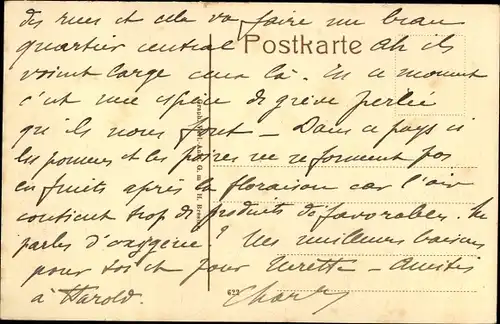 des rues et cela va faire un beau
quartier central Postkarte Ah ils
voient large ceux là. En ce moment
c'est une espèce de grève perlée
qu'ils nous font — Dans ce pays ci
les pommes et les poires ne se forment pas
en fruits après la floraison car l'air
contient trop de produits défavorables.
parles d'oxygène? Mes meilleurs baisers
pour toi et pour — Amitiés
à Harold.
622